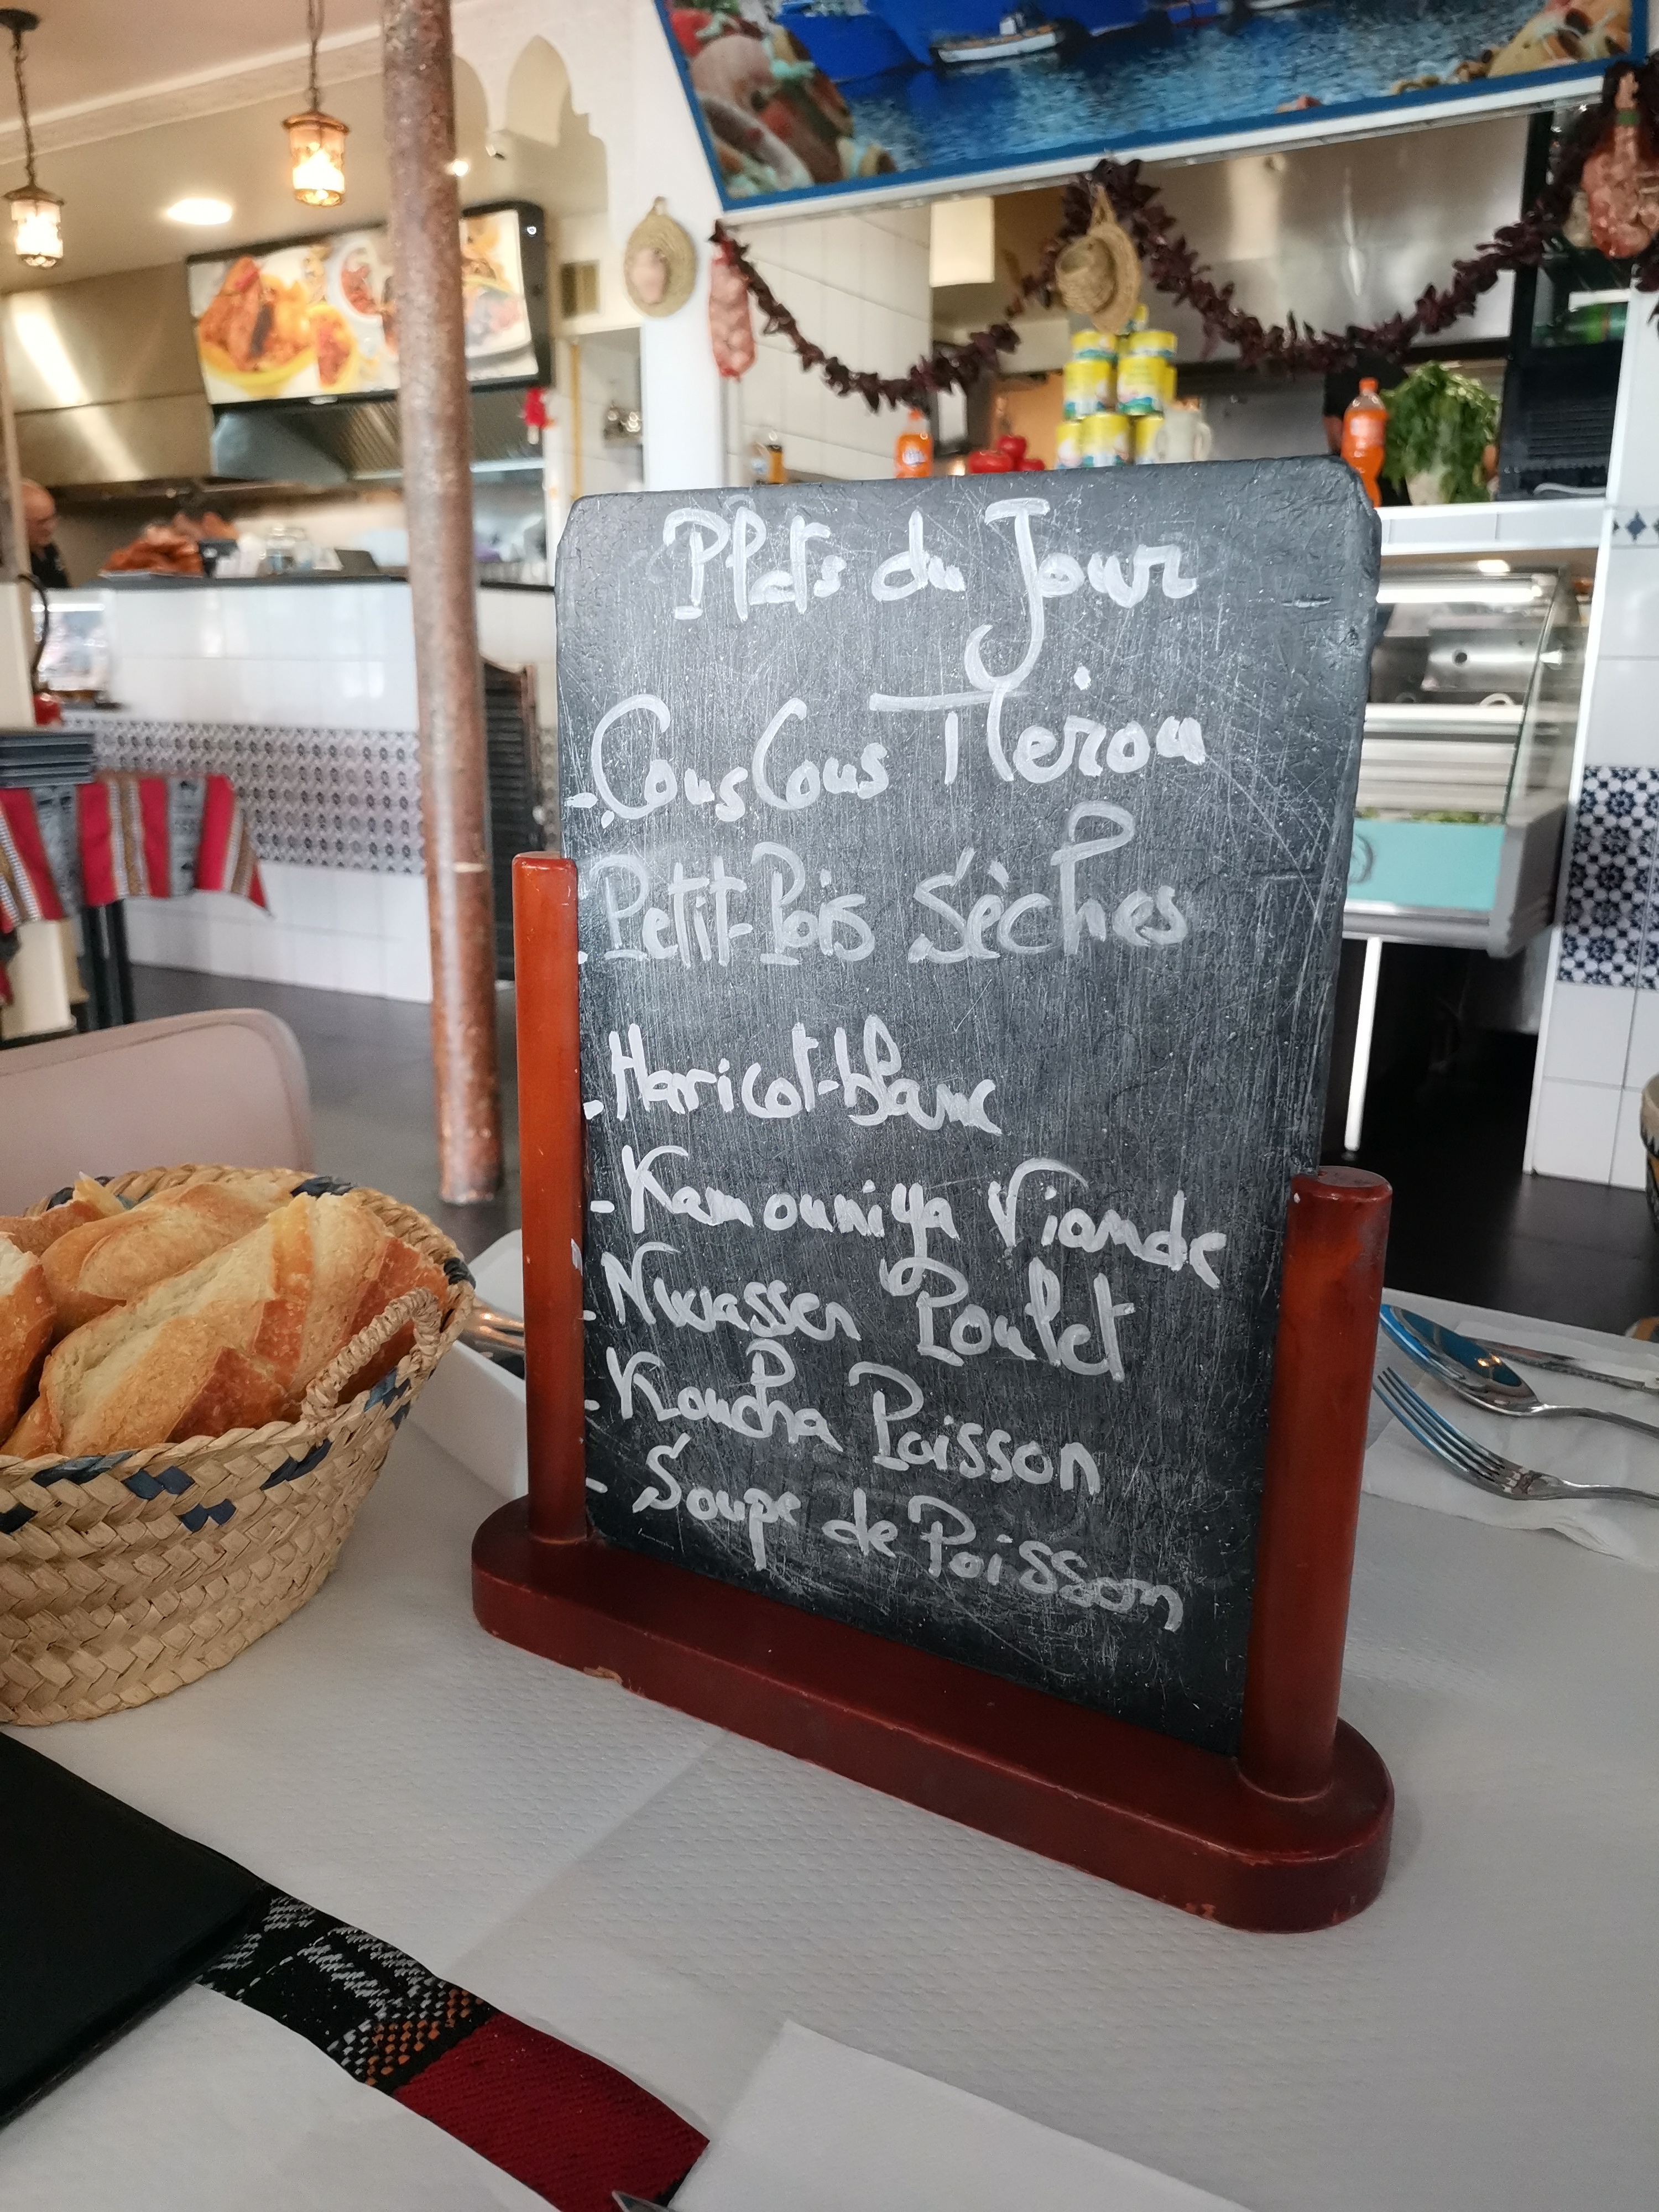 Plats du Jour
- CousCous Merou
- Petit-Pois Sèches
- Haricot-blanc
- Kamouniya Viande
- Nwasser Poulet
- Koucha Poisson
- Soupe de Poisson